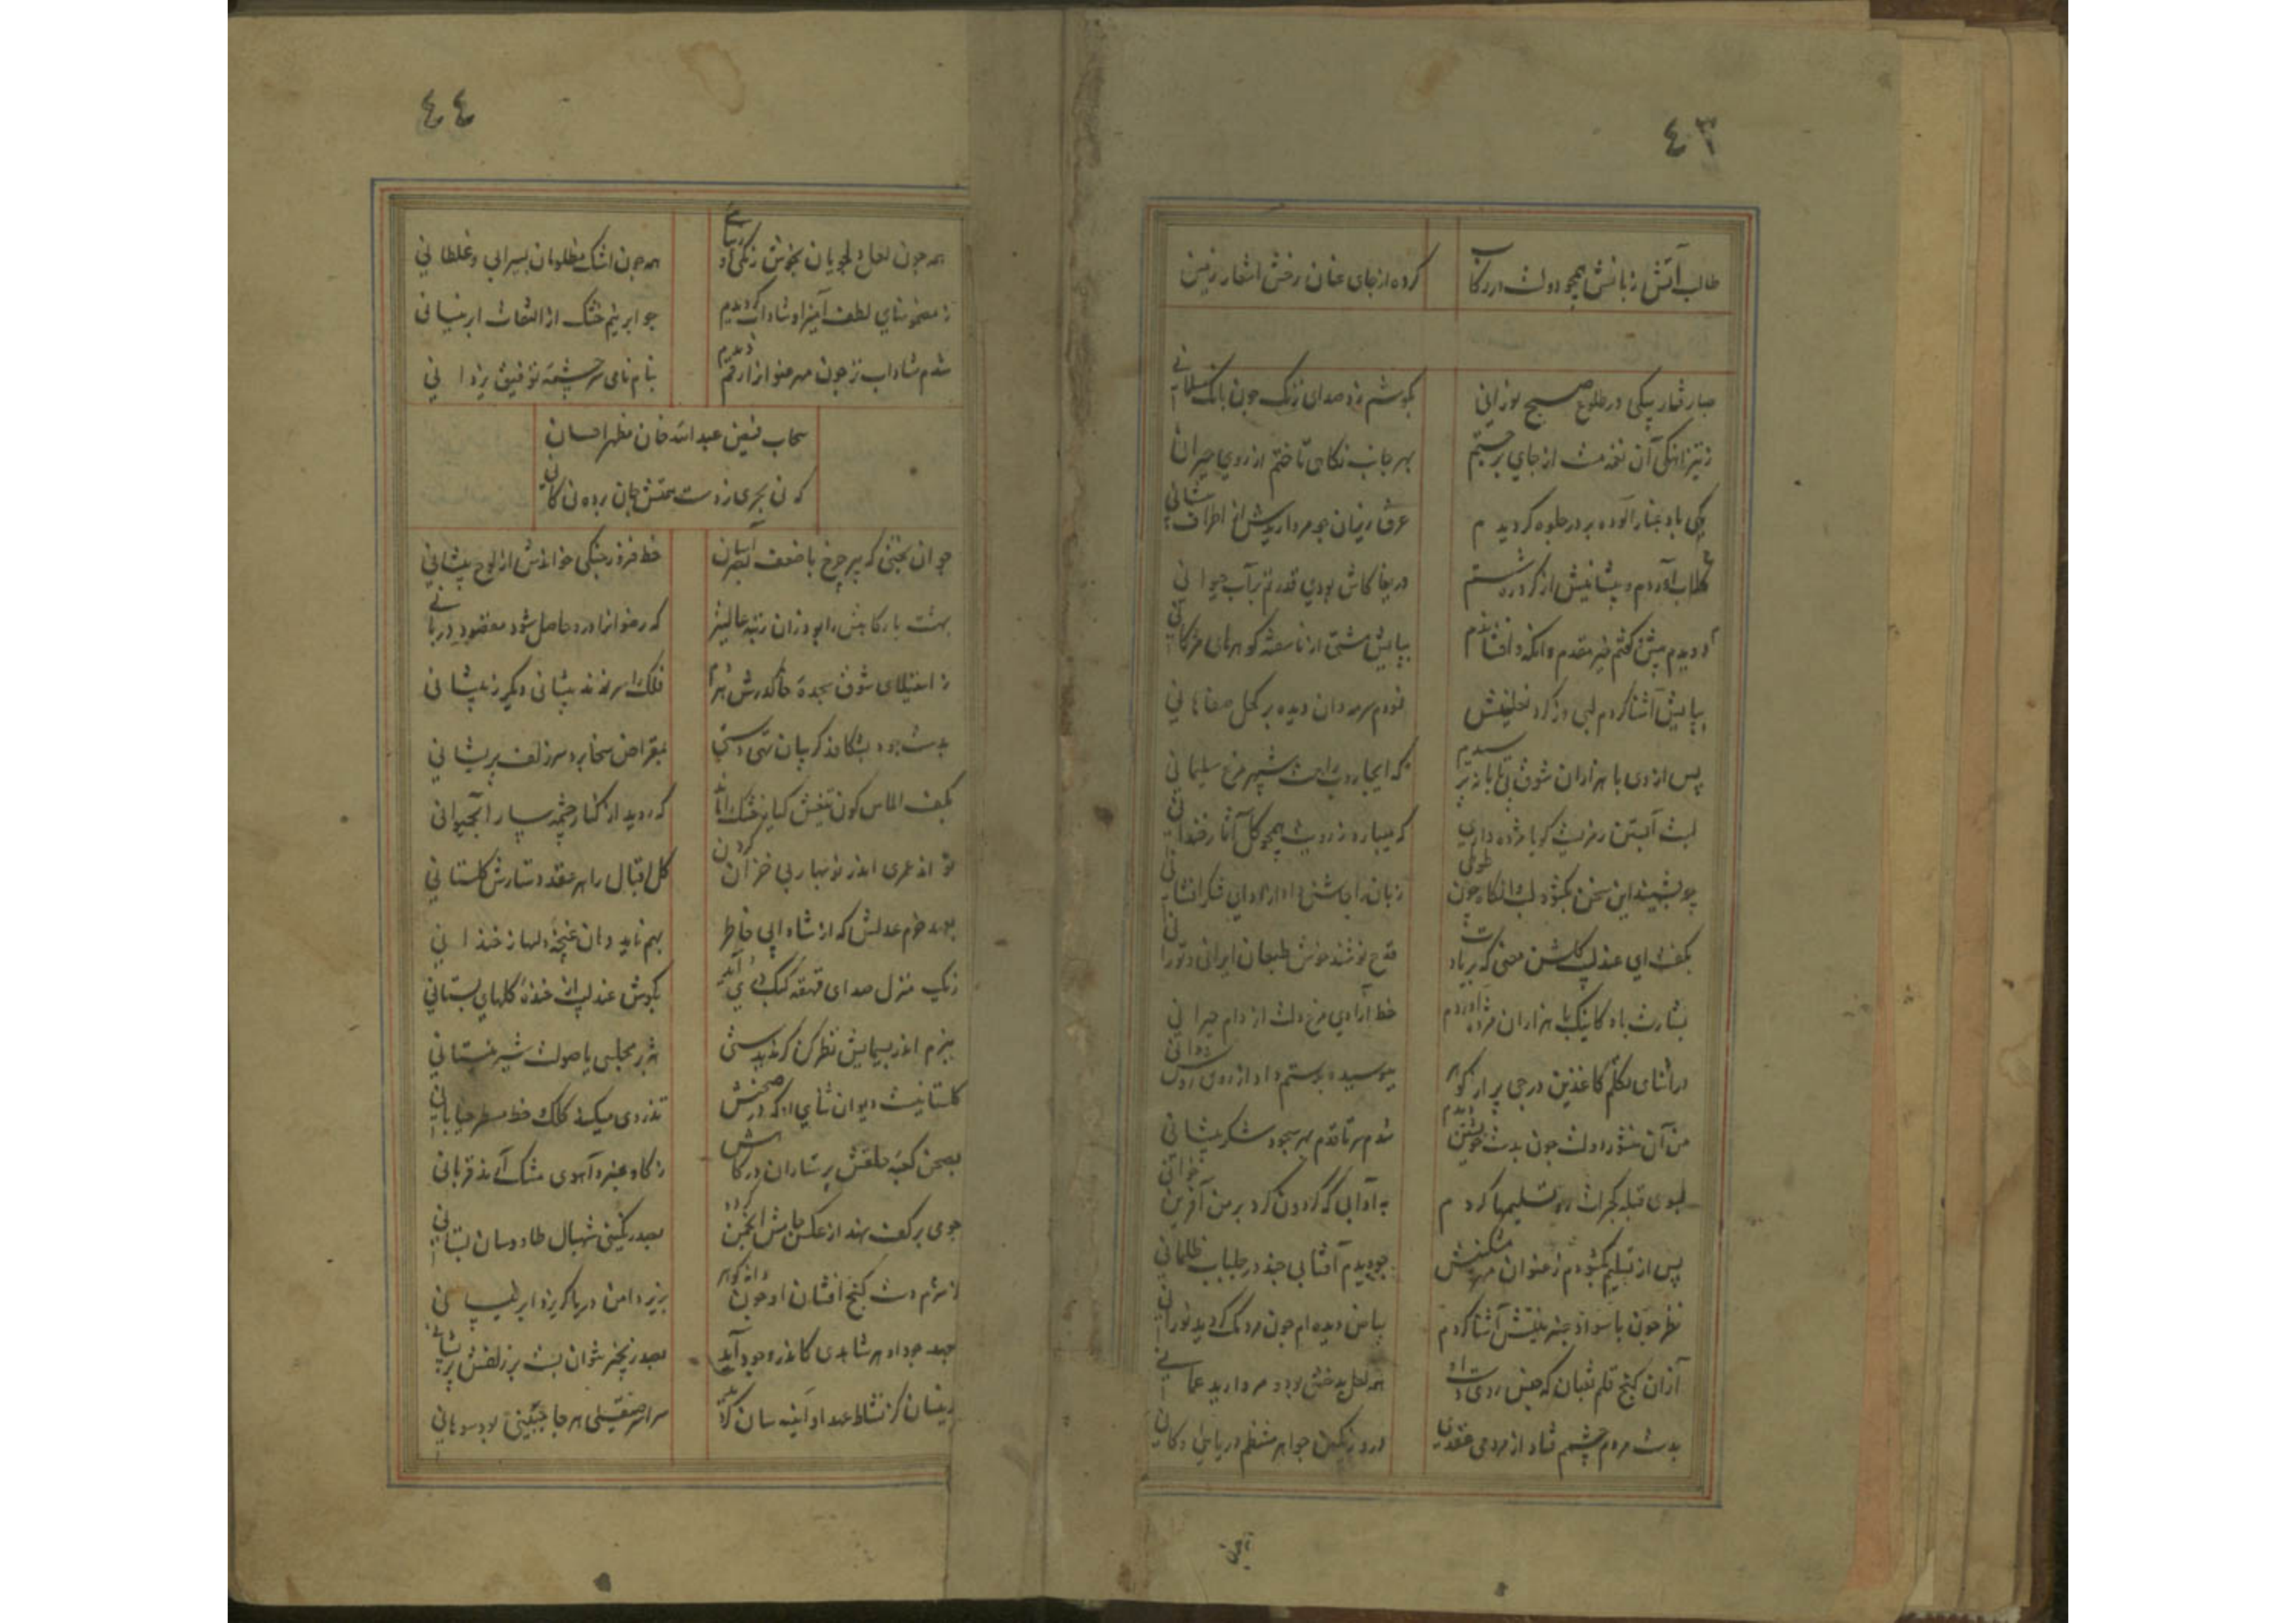 ٤٣
طالب آتش زبانش همچو دولت در رکاب
کرده از جای عنان رخش اشعار زنین
صبا رفتار پیکی در طلوع صبح نورانی
بگوشم زد صدای زنگ چون بانک سلیمانی
ز تیز آهنگی آن نغمه مست از جای برجستم
بهر جانب نگاهی تاختم از روی حیرانی
یکی باد غبار آلوده بر در جلوه گر دیدم
عرق ریزان چو مروارید از اطراف پیشانی
گلاب آوردم و پیشانیش از گرد ره شستم
دریغا کاش بودی قدرتم بر آب حیوانی
دویدم پیش گفتم خیر مقدم وانگه افشاندم
بپایش مشتی از ناسفته گوهرهای مژگانی
بپایش آشنا کردم لبی وز گرد نعلینش
فزودم سرمه دان دیده بر کحل صفاهانی
پس از وی با هزاران شوق بیتابانه پرسیدم
که ایجاروب راهت شهپر مرغ سلیمانی
لبت آبستن رمزیست گویا مژده داری
که میبارد ز رویت همچو گل آثار خندانی
چو بشنید این سخن بگشود لب آنگاه چون طوطی
زبان را چاشنی داد از ادای شکر افشانی
بگفت ای عندلیب گلشن معنی که بر یادت
قدح نوشند خوش طبعان ایرانی و تورانی
بشارت باد کاینک با هزاران مژده آوردم
خط آزادی مرغ دلت از دام حیرانی
در اثنای تکلم کاغذین درجی پر از گوهر
ببوسید و بدستم داد از روی
من آن منشور دولت چون بدست خویشتن دیدم
شدم سر تا قدم بهر سجود شکر پیشانی
بسوی قبله گجرات رو تسلیمها کردم
به آدابی که گردون کرد بر من آفرین خوانی
پس از تسلیم بگشودم ز عنوان مهر مشکینش
چو دیدم آفتابی چند در جلباب ظلمانی
نظر چون با سواد عنبرینش آشنا کردم
بیاض دیده ام چون مردمک گردید نورانی
از آن گنج قلم ثعبان که چین روی داد
همه لعل بدخشی بود و مروارید عمانی
بدست مردم چشم فتاد از مردمی عقدی
درو رنگین جواهر منتظم دریایی و کانی
٤٤
همه چون لعل دلجویان بخوش رنگی و زیبائی
همه چون اشک مظلومان بسیرابی و غلطانی
ز مضمونهای لطف آمیز او شاداب گردیدم
چو ابر نیم خشک از التفات ابر نیسانی
شدم شاداب تر چون مهر عنوانرا رقم دیدم
بنام نامی سرچشمه توفیق یزدانی
سحاب فیض عبدالله خان مظهر احسان
که نی بحری ز دست همتش جان برده نی کانی
جوان بختی که پیر چرخ با ضعف بصر آسان
خط فرد رخنکی خواندش از لوح پیشانی
بهشت بارگاهش را بود زان رتبه عالیتر
که رضوانرا درو حاصل شود مقصود دربانی
ز استیلای شوق سجده خاک درش هر دم
فلک را سر زند پیشانی دیگر ز پیشانی
بدست جود بشکافد گریبان تهی دستی
بمقراض سخا برد سر زلف پریشانی
بکف الماس گون تیغش گیاه خشک را ماند
که روید از کنار چشمه سار آبحیوانی
تواند عمری اندر نوبهار بی خزان کردن
گل اقبال را هر عقد دستارش گلستانی
بعهد خرم عدلش که از شادابی خاطر
بهم ناید دهان غنچه دلها ز خندانی
بگوش عندلیب از خنده گلهای بستانی
ببزم اندر بسیمایش نظر کن گر ندیدستی
هژبر مجلسی با صولت شیر نیستانی
گلستانیست دیوان ثنای او که در صحنش
تذروی میکند کلک خط مسطر خیابانی
بصحن کعبه خلقش پرستاران درگاهش
ز گاو عنبر و آهوی مشک آرند قربانی
چو می بر کف نهد از عکس جامش انجمن گردد
بصد رنگینی شهبال طاوسان بستانی
ز شرم دست گنج افشان او چون دانه گوهر
بزیر دامن دریا گریزد ابر نیسانی
بعهد جود او هر شاهدی کاندر وجود آید
بصد زنجیر نتوان بست بر زلفش پریشانی
سراسر صیقلی هر جا جبینی بود سوهانی